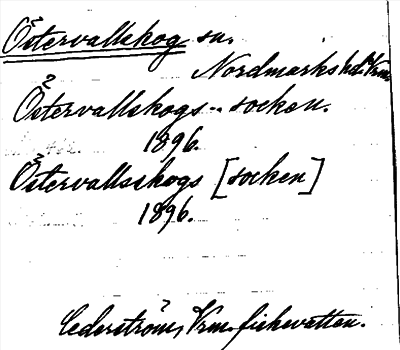 Östervallskog sn.
Nordmarks hd. Vrm.
Östervallskogs-- socken.
1896.
Östervallsskogs [socken]
1896.
Cederström, Vrm. fiskevatten.